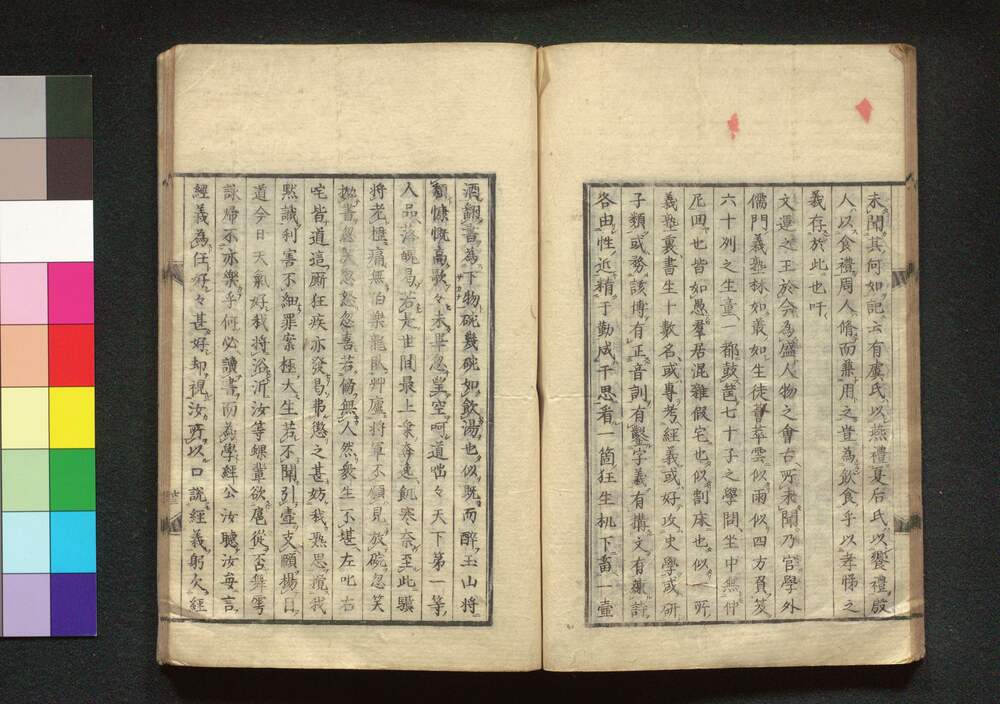 未聞其何如記云有虞氏以燕禮夏后氏以饗禮殷
人以食禮周人脩而兼用之豈為飲食乎以孝悌之
義存於此也吁
文運之王於今為盛人物之會古所未聞乃官學外
儒門義塾林如叢如生徒萃雲似雨似四方負笈
六十列之生童一都鼓篋七十子之學問坐中無仲
尼回也皆如愚羣居混雜假宅也似割床也似一所
義塾裏書生十數名或專考經義或好攻史學或研
子類或務該博有正音訓有鑿字義有搆文有詩
各由性近精于勤成于思看一箇狂生机下畜一壷
酒翻書為下物碗幾碗如飲湯也似既而醉玉山將
頽慷慨高歌々未畢忽望空呵道咄々天下第一等
人品落魄易若是世間最上業毒遠飢寒奈至此驥
將老櫪痛無伯樂龍臥艸廬將軍不願見放碗忽笑
擲書忽哭忽怒忽喜若傍無人然衆生不堪左叱右
咤皆道這厮狂疾亦發易弗懲之甚妨我熟思攪我
默識利害不細罪案極大生若不聞引壷支頤揚目
道今日天氣好我將浴沂汝等鯫輩欲扈從否舞雩
詠帰不亦樂乎何必讀書而為學經公汝聽汝毎言
經義為任好々甚好却視汝所以口說經義躬欠經